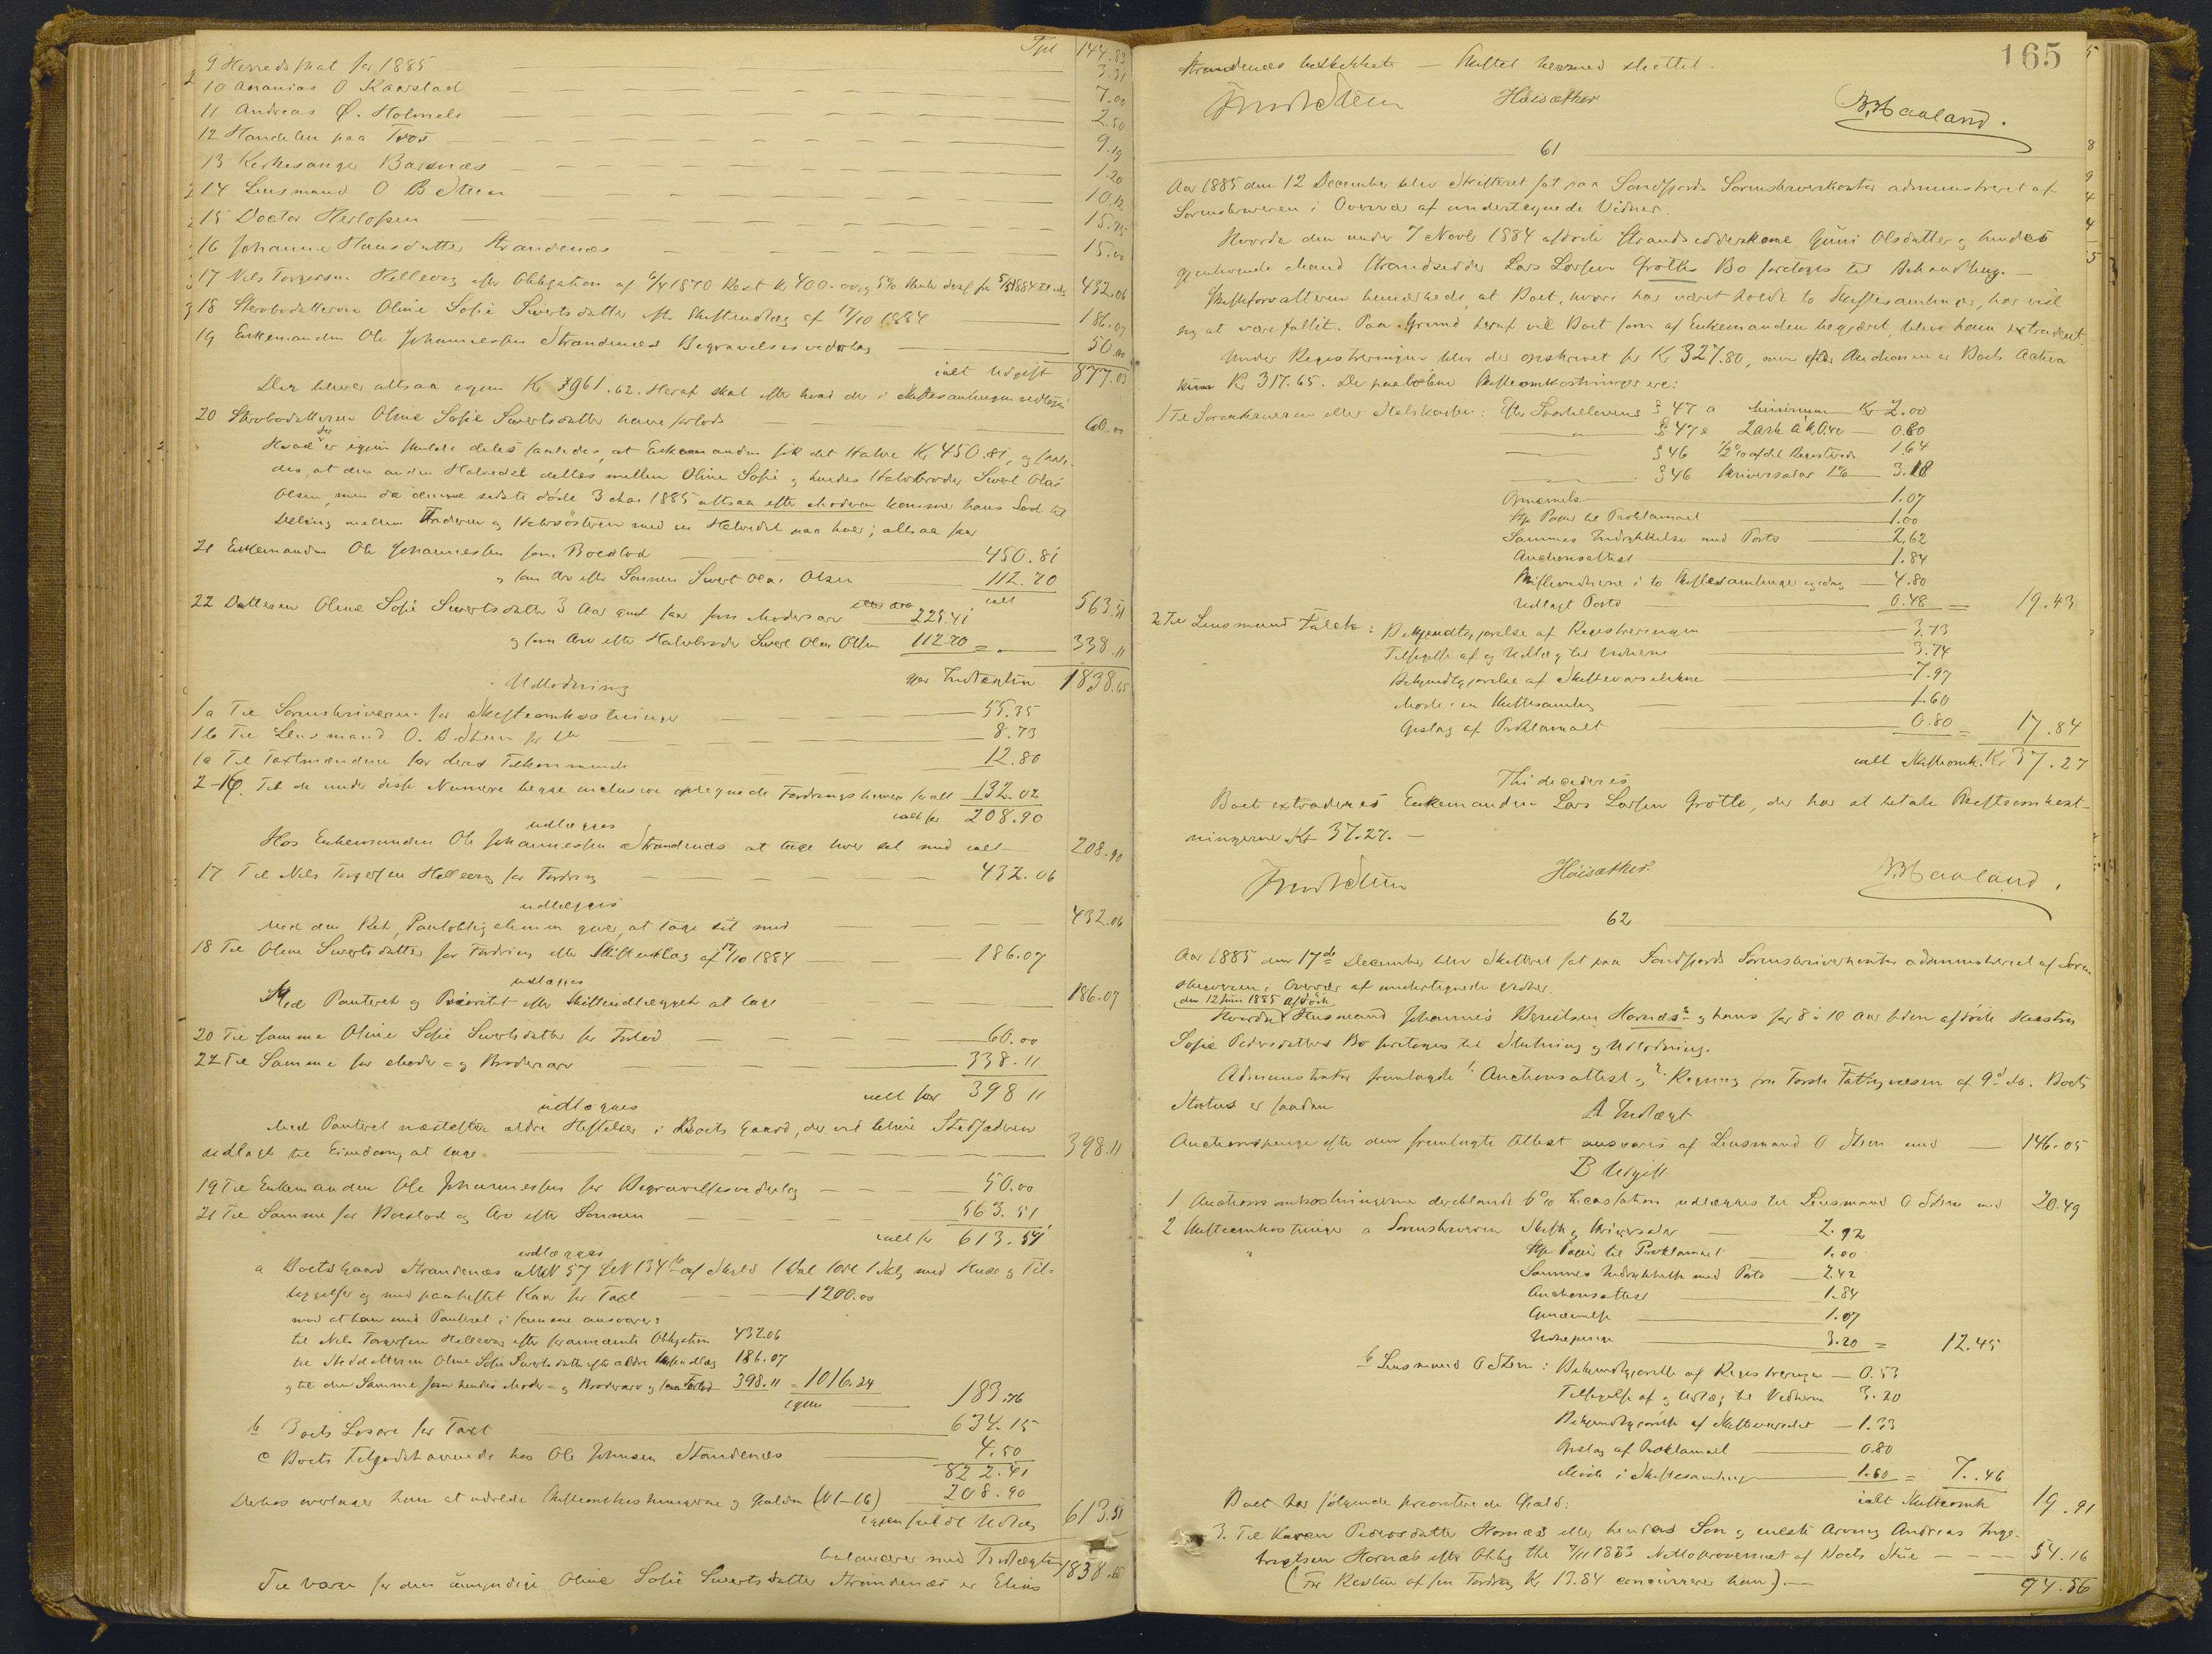 Tpt 144.83
9 Herredskat for 1885 3.31
10 Ananias O Kaarstad 7.00
11 Andreas Ø. Holmele 2.50
12 Handelen paa 9.19
13 Kirkesanger Barsnæs 1.20
14 Lensmand O B Steen 10.12
15 Doctor Herlofsen 15.75
16 Johanne Hansdatter Strandenæs 15.00
17 Nils Torgersen Hellevog efter Obligation af 6/4 1870 Rest Kr 400.00 og 5% Renter deraf fra 1884 432.06
18 Oline Sofie Sivertsdatter efter Skifteudlæg af 17/10 1884 186.07
19 Enkemanden Ole Johannessen Strandenæs Begravelsesvederlag 50.00
ialt Udgift 877.03
Der bliver altsaa igjen Kr 961.62. Heraf skal efter hvad der i Skiftesamlingen vedtoges
20 Oline Sofie Sivertsdatter have forlods 60.00
Hvad der er igjen skulde deles saaledes, at Enkemanden fik det Halve Kr 450.81, og saale-
des, at den anden Halvedel deltes mellem Oline Sofie og hendes Halvbroder Sivert Olai
Olsen, men da denne sidste døde 3 Mar 1885 altsaa efter Moderen kommer hans Lod til
Deling mellem Faderen og Halvsøsteren med en Halvedel paa hver; altsaa faar
21 Enkemanden Ole Johannessen som Boeslod 450.81
og som Arv efter Sønnen Sivert Olai Olsen 112.70
ialt 563.51
22 Datteren Oline Sofie Sivertsdatter 3 Aar gml faar som Modersarv 225.41
og som Arv efter Halvbroder Sivert Olai Olsen 112.70 = 338.11
Indtægten 1838.65
Udlodning
1a Til Sorenskriveren for Skifteomkostninger 55.35
1b Til Lensmand O. B. Steen for do 8.73
1c Til Taxtmændene for deres Tilkommende 12.80
2-16. Til de under disse Numere begge inclusive opregnede Fordringshavere for alt 132.02
ialt for 208.90
udlægges
Hos Enkemanden Ole Johannessen Strandenæs at tage hver sit med ialt 208.90
17 Til Nils Torgersen Hellevog for Fordring 432.06
udlægges
Med den Ret, Pantobligationen giver, at tage sit med 432.06
18 Til Oline Sivertsdatter for Fordring efter Skifteudlæg af 17/10 1884 186.07
udlægges
Med Panteret og Prioritet efter Skifteudlægget at tage 186.07
20 Til samme Oline Sofie Sivertsdatter for Forlod 60.00
22 Til Samme for Moder- og Broderarv 338.11
ialt for 398 11
udlægges
Med Panteret næstefter ældre Heftelser i Boets Gaard, der vil blive Stedfaderen
udlagt til Eiendom, at tage 398.11
19 Til Enkemanden Ole Johannessen for Begravelsesvederlag 50.00
21 Til Samme for Boeslod og Arv efter Sønnen 563.51
ialt for 613.51
udlægges
a Boets Gaard Strandenæs MN 57 LN 134b af Skyld 1 Dal 1 Ort 1 Skl med Huse og Til-
liggelser og med paaheftet Kaar for Taxt 1200.00
mod at han med Panteret i samme ansvarer:
til Nils Torgersen Hellevog efter forannævnte Obligation 432.06
til Steddatteren Oline Sofie Sivertsdatter efter ældre Udlæg 186.07
og til den Samme som hendes Moder- og Broderarv og Forlod 398.11 = 1016.24
igjen 183.76
b Boets Løsøre for Taxt 634.15
c Boets Tilgodehavende hos Ole Johnsen Strandenæs 4.50
822.41
Derhos overtager han at udrede Skifteomkostningerne og Gjælden (N 1-16) 208.90
igjen fuldt Udlæg 613.51
balancerer med Indtægten 1838.65
Til værge for den umyndige Oline Sofie Sivertsdatter Strandenæs er Elias
165
Strandenæs beskikket — Skiftet hermed sluttet.
Høisæther
B. Haaland.
61
Aar 1885 den 12 December blev Skifteret sat paa Søndfjords Sorenskriverkontor administreret af
Sorenskriveren i Overvær af undertegnede Vidner.
Hvorda den under 7 Novbr 1884 afdøde Strandsidderkone Guri Olsdatter og hendes
gjenlevende Mand Strandsidder Lars Larsen Grotles Bo foretoges til Behandling. —
Skifteforvalteren bemærkede, at Boet, hvori har været holdt to Skiftesamlinger, har vist
sig at være fallit. Paa Grund heraf vil Boet som af Enkemanden begjæret, blive ham extraderet.
Under Registreringen blev der opskrevet for Kr 327.80, men efter Auctionen er Boets Activa
kun Kr 317.65. De paaløbne Skifteomkostninger ere:
1 Til Sorenskriveren eller Statskassen: Efter Sportellovens § 47 a Minimum Kr 2.00
§ 47 e 2 ark à 40 Øre 0.80
§ 46 1/2 % af det Registrerede 1.64
§ 46 1% 3.18
Opnævnelse 1.07
Stp Papir til Proklamaet 1.00
Sammes Indrykkelse med Porto 2.62
Auctionsattest 1.84
Skiftevidnerne i to Skiftesamlinger og idag 4.80
Udlagt Porto 0.48 = 19.43
2 Til Lensmand Falck: Bekjendtgjørelse af Registreringen 3.73
Tilsigelse af og Udlæg til Vidnerne 3.74
Bekjendtgjørelse af Skiftevarslerne 7.97
Møde i en Skiftesamling 1.60
Opslag af Proklamaet 0.80 = 17.84
ialt Skifteomk. Kr 37.27
Thi decideres
Boet extraderes Enkemanden Lars Larsen Grotle, der har at betale Skifteomkost-
ningerne Kr 37.27. —
Høisæther
B. Haaland.
62
Aar 1885 den 17de December blev Skifteret sat paa Søndfjords Sorenskriverkontor administreret af Soren
skriveren i Overvær af undertegnede Vidner.
den 12 Juni 1885 afdøde
Hvorda Husmand Johannes Hornæs og hans for 8 à 10 Aar siden afdøde Hustru
Sofie Pedersdatters Bo foretoges til Slutning og Udlodning.
Administrator fremlagde 1 Auctionsattest og 2 Regning fra Førde Fattigvæsen af 9de ds. Boets
Status er saadan
A Indtægt
Auctionspenge efter den fremlagte Attest ansvares af Lensmand O Steen med 146.05
B Udgift
1 Auctionsomkostningerne deriblandt 6% Incassation udlægges til Lensmand O Steen med 20.49
2 Skifteomkostninger a Sorenskriveren Skifte og 2.92
Stp Papir til Proklamaet 1.00
Sammes Indrykkelse med Porto 2.42
Auctionsattest 1.84
Opnævnelse 1.07
Vidnepenge 3.20 = 12.45
b Lensmand O Steen: Bekjendtgjørelse af Registreringen 0.53
Tilsigelse af og Udlæg til Vidnerne 3.20
Bekjendtgjørelse af Skiftevarselet 1.33
Opslag af Proklamaet 0.80
Møde i Skiftesamling 1.60 = 7.46
ialt Skifteomk 19.91
Boet har følgende prioriterede Gjæld:
3. Til Karen Pedersdatter Hornæs eller hendes Søn og eneste Arving Andreas Inge-
brigtsen Hornæs efter Oblig thl 7/11 1883 Nettoprovenuet af Boets Stue 54.16
(For Resten af sin Fordring Kr 13.84 concurrerer han). —
94.56